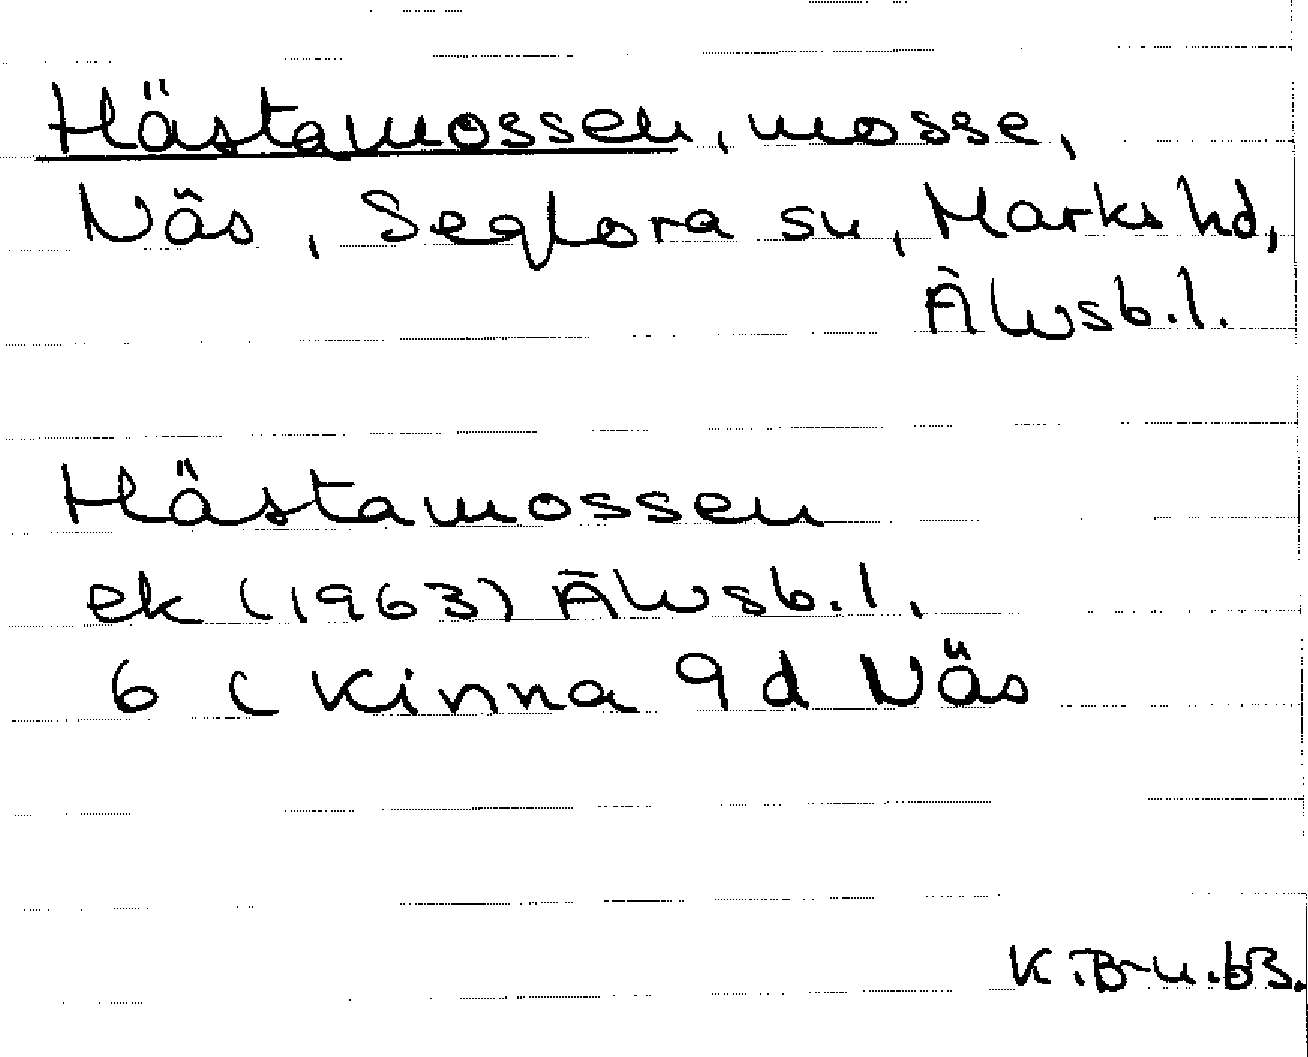 Hästamossen, mosse,
Näs, Seglora sn, Marks hd,
Älvsb.l.
Hästamossen
ek (1963) Älvsb.l.
6 C Kinna 9 d Näs
K.B-n.63.